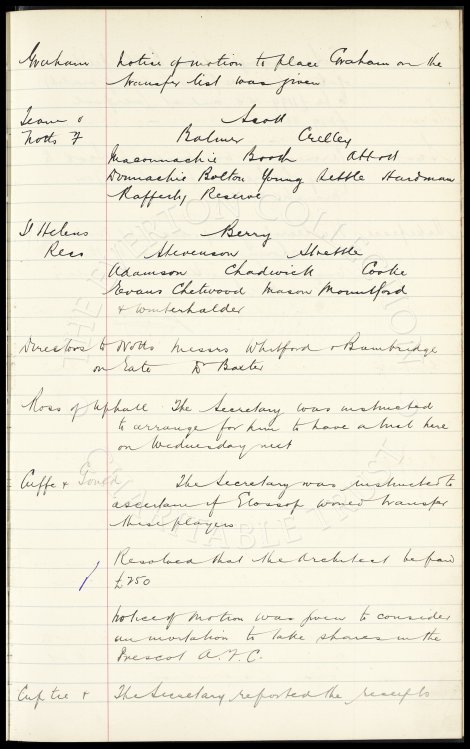 Graham notice of motion to place Graham on the
transfer list was given
Team v Scott
Notts F Balmer Crelley
Maconnachie Booth Abbott
Donnachie Bolton Young Settle Hardman
Rafferty Reserve
St Helens Berry
Ress Stevenson Strettle
Adamson Chadwick Cooke
Evans Chetwood Mason Mountford
& Winterhalder
Directors to Notts Messrs Whitford & Bainbridge
on Gate Dr Baxter
Ross of Uphall The Secretary was instructed
to arrange for him to have a trial here
on Wednesday next
Cuffe & Gould The Secretary was instructed to
ascertain if Glossop would transfer
these players
Resolved that the Architect be paid
£250
Notice of motion was given to consider
an invitation to take shares in the
Prescot A.F.C.
Cup tie & The Secretary reported the receipts
THE EVERTON COLLECTION
CHARITABLE TRUST